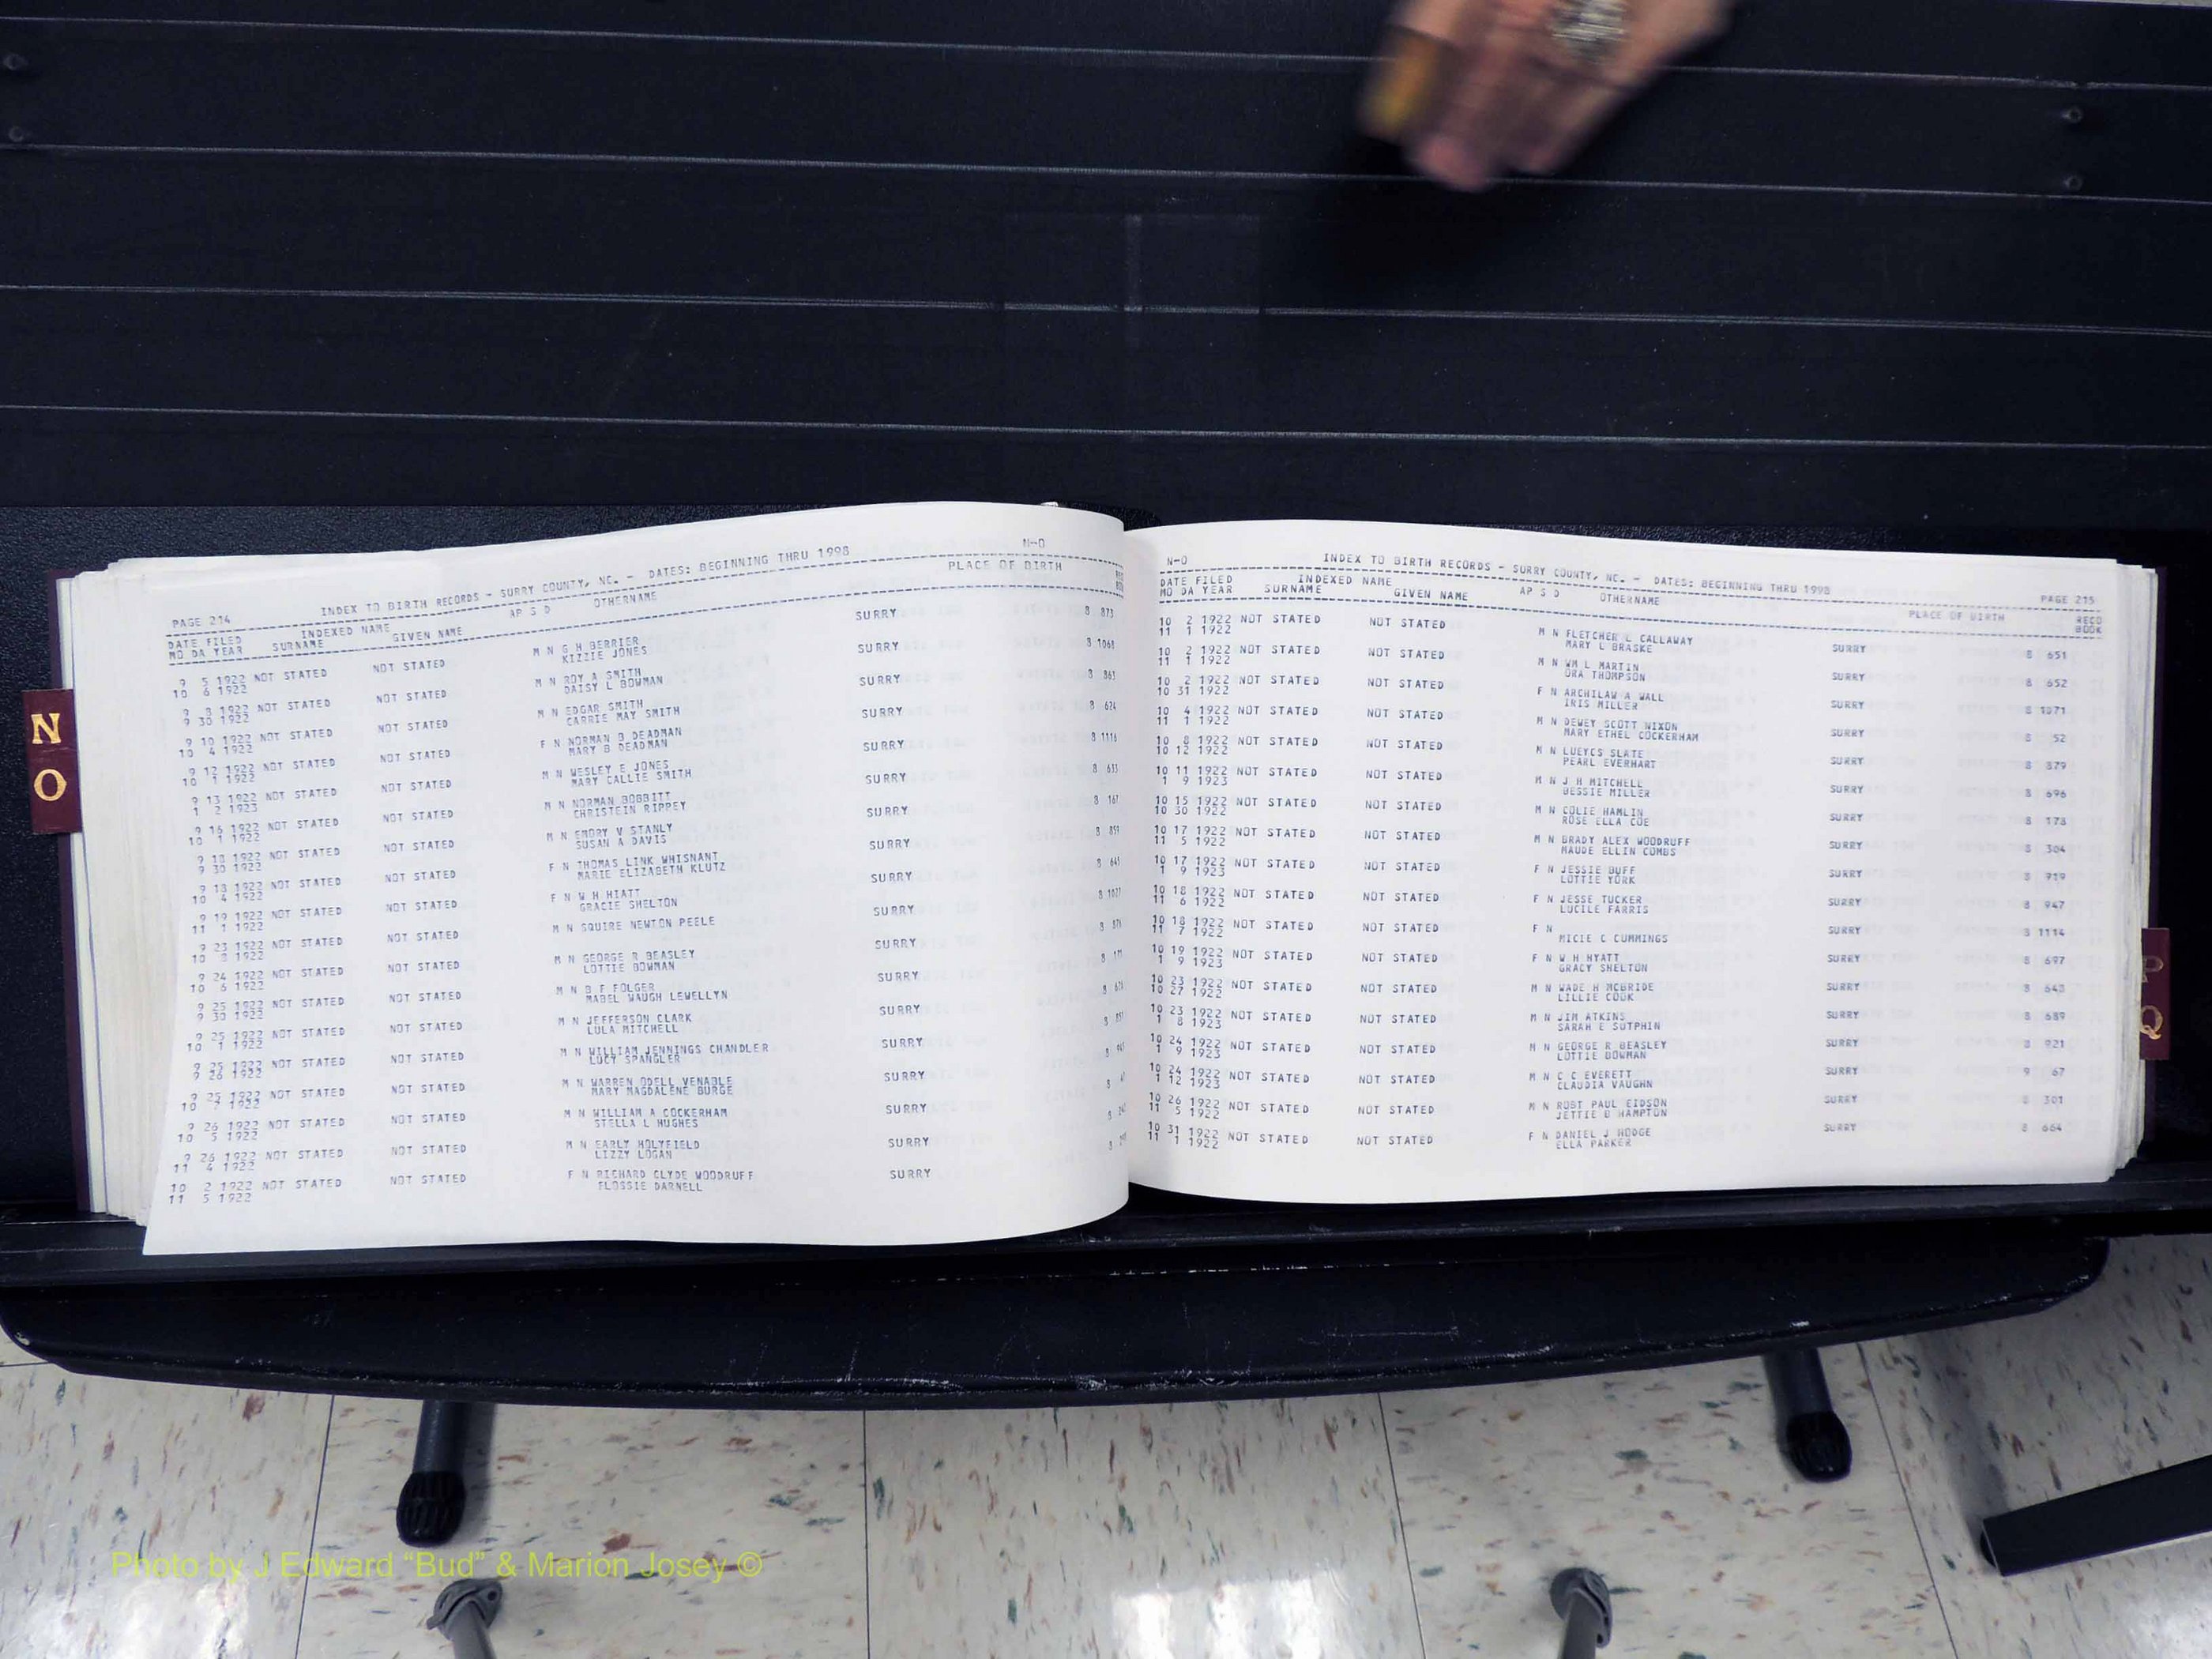 N-O
PAGE 214 INDEX TO BIRTH RECORDS - SURRY COUNTY, NC. - DATES: BEGINNING THRU 1998
DATE FILED INDEXED NAME AP S D OTHERNAME PLACE OF BIRTH
MO DA YEAR SURNAME GIVEN NAME
9 5 1922 NOT STATED NOT STATED M N G H BERRIER SURRY 8 873
10 6 1922 KIZZIE JONES
9 8 1922 NOT STATED NOT STATED M N ROY A SMITH SURRY 8 1068
9 30 1922 DAISY L BOWMAN
9 10 1922 NOT STATED NOT STATED M N EDGAR SMITH SURRY 8 863
10 4 1922 CARRIE MAY SMITH
9 12 1922 NOT STATED NOT STATED F N NORMAN B DEADMAN SURRY 8 624
10 1 1922 MARY B DEADMAN
9 13 1922 NOT STATED NOT STATED M N WESLEY E JONES SURRY 8 1116
1 2 1923 MARY CALLIE SMITH
9 16 1922 NOT STATED NOT STATED M N NORMAN BOBBITT SURRY 8 633
10 1 1922 CHRISTEIN RIPPEY
9 18 1922 NOT STATED NOT STATED M N EMORY V STANLY SURRY 8 167
9 30 1922 SUSAN A DAVIS
9 18 1922 NOT STATED NOT STATED F N THOMAS LINK WHISNANT SURRY 8 859
10 4 1922 MARIE ELIZABETH KLUTZ
9 19 1922 NOT STATED NOT STATED F N W H HIATT SURRY 8 645
11 1 1922 GRACIE SHELTON
9 23 1922 NOT STATED NOT STATED M N SQUIRE NEWTON PEELE SURRY 8
10 8 1922
9 24 1922 NOT STATED NOT STATED M N GEORGE R BEASLEY SURRY 8
10 6 1922 LOTTIE BOWMAN
9 25 1922 NOT STATED NOT STATED M N B F FOLGER SURRY 8
9 30 1922 MABEL WAUGH LEWELLYN
9 25 1922 NOT STATED NOT STATED M N JEFFERSON CLARK SURRY 8
10 1 1922 LULA MITCHELL
9 25 1922 NOT STATED NOT STATED M N WILLIAM JENNINGS CHANDLER SURRY 8
9 26 1922 LUCY SPANGLER
9 25 1922 NOT STATED NOT STATED M N WARREN ODELL VENABLE SURRY
10 7 1922 MARY MAGDALENE BURGE
9 26 1922 NOT STATED NOT STATED M N WILLIAM A COCKERHAM SURRY
10 5 1922 STELLA L HUGHES
9 26 1922 NOT STATED NOT STATED M N EARLY HOLYFIELD SURRY
11 4 1922 LIZZY LOGAN
10 2 1922 NOT STATED NOT STATED F N RICHARD CLYDE WOODRUFF SURRY
11 5 1922 FLOSSIE DARNELL
N-O INDEX TO BIRTH RECORDS - SURRY COUNTY, NC. - DATES: BEGINNING THRU 1998 PAGE 215
DATE FILED INDEXED NAME AP S D OTHERNAME PLACE OF BIRTH RECO
MO DA YEAR SURNAME GIVEN NAME BOOK
10 2 1922 NOT STATED NOT STATED M N FLETCHER L CALLAWAY SURRY 8 651
11 1 1922 MARY L BRASKE
10 2 1922 NOT STATED NOT STATED M N WM L MARTIN SURRY 8 652
11 1 1922 ORA THOMPSON
10 2 1922 NOT STATED NOT STATED F N ARCHILAW A WALL SURRY 8 1071
10 31 1922 IRIS MILLER
10 4 1922 NOT STATED NOT STATED M N DEWEY SCOTT NIXON SURRY 8 52
11 1 1922 MARY ETHEL COCKERHAM
10 8 1922 NOT STATED NOT STATED M N LUEYCS SLATE SURRY 8 879
10 12 1922 PEARL EVERHART
10 11 1922 NOT STATED NOT STATED M N J H MITCHELL SURRY 8 696
1 9 1923 BESSIE MILLER
10 15 1922 NOT STATED NOT STATED M N COLIE HAMLIN SURRY 8 178
10 30 1922 ROSE ELLA COE
10 17 1922 NOT STATED NOT STATED M N BRADY ALEX WOODRUFF SURRY 8 304
11 5 1922 MAUDE ELLIN COMBS
10 17 1922 NOT STATED NOT STATED F N JESSIE BUFF SURRY 8 919
1 9 1923 LOTTIE YORK
10 18 1922 NOT STATED NOT STATED F N JESSE TUCKER SURRY 8 947
11 6 1922 LUCILE FARRIS
10 18 1922 NOT STATED NOT STATED F N SURRY 8 1114
11 7 1922 MICIE C CUMMINGS
10 19 1922 NOT STATED NOT STATED F N W H HYATT SURRY 8 697
1 9 1923 GRACY SHELTON
10 23 1922 NOT STATED NOT STATED M N WADE H MCBRIDE SURRY 8 643
10 27 1922 LILLIE COOK
10 23 1922 NOT STATED NOT STATED M N JIM ATKINS SURRY 8 689
1 8 1923 SARAH E SUTPHIN
10 24 1922 NOT STATED NOT STATED M N GEORGE R BEASLEY SURRY 8 921
1 9 1923 LOTTIE BOWMAN
10 24 1922 NOT STATED NOT STATED M N C C EVERETT SURRY 9 67
1 12 1923 CLAUDIA VAUGHN
10 26 1922 NOT STATED NOT STATED M N ROBT PAUL EIDSON SURRY 8 301
11 5 1922 JETTIE B HAMPTON
10 31 1922 NOT STATED NOT STATED F N DANIEL J HODGE SURRY 8 664
11 1 1922 ELLA PARKER
N
O
P
Q
Photo by J Edward “Bud” & Marion Josey ©